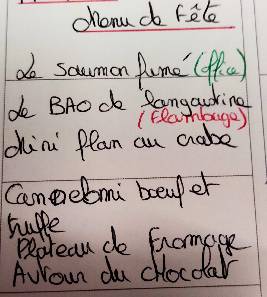 Menu de Fête
Le saumon fumé (office)
Le BAO de langoustine
(Flambage)
Mini flan au crabe
Canneloni boeuf et
truffe
Plateau de Fromage
Autour du chocolat